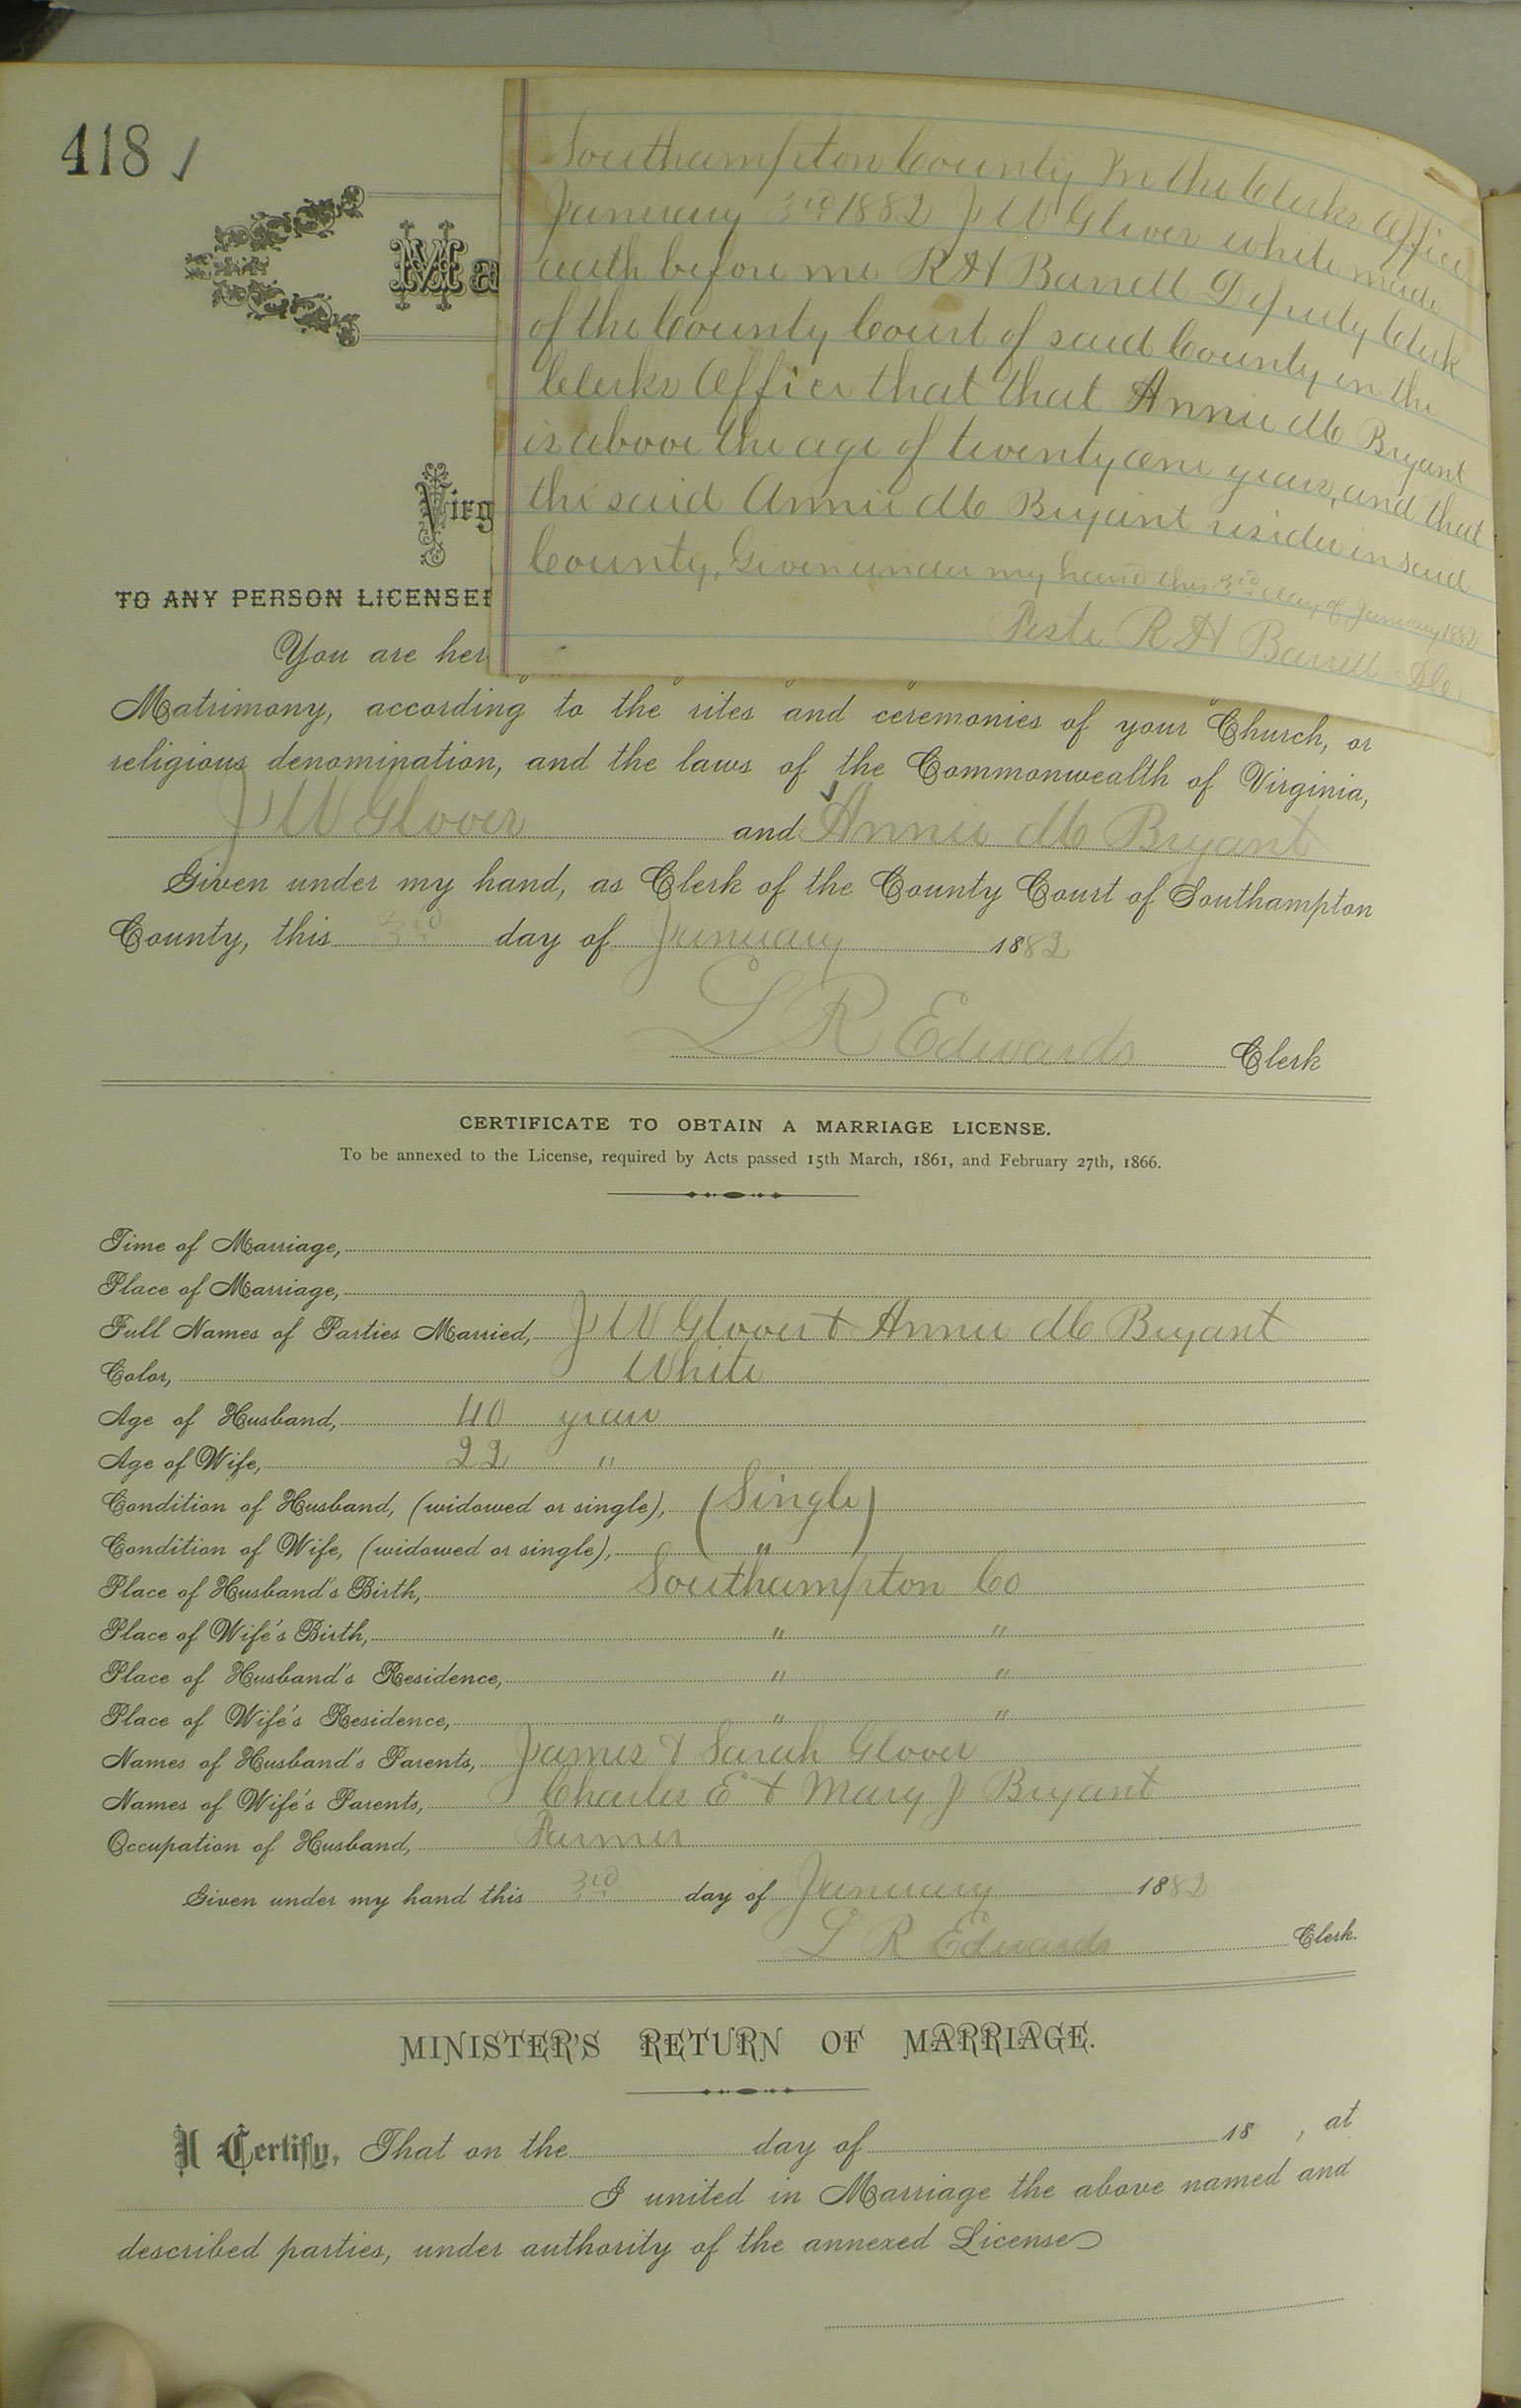 418
Southampton County In the Clerks Office
January 3rd 1882 J W Glover white made
oath before me R H Barrett Deputy Clerk
of the County Court of said County in the
Clerks Office that that Annie M Bryant
is above the age of twenty one years, and that
the said Annie M Bryant resides in said
County, Given under my hand this 3rd day of January 1882
Teste R H Barrett
Ma
Virg
TO ANY PERSON LICENSE
You are her
Matrimony, according to the rites and ceremonies of your Church, or
religious denomination, and the laws of the Commonwealth of Virginia,
J W Glover and Annie M Bryant
Given under my hand, as Clerk of the County Court of Southampton
County, this 3rd day of January 1882
L R Edwards Clerk
CERTIFICATE TO OBTAIN A MARRIAGE LICENSE.
To be annexed to the License, required by Acts passed 15th March, 1861, and February 27th, 1866.
Time of Marriage,
Place of Marriage,
Full Names of Parties Married, J W Glover & Annie M Bryant
Color, White
Age of Husband, 40 years
Age of Wife, 22 "
Condition of Husband, (widowed or single), (Single)
Condition of Wife, (widowed or single), "
Place of Husband's Birth, Southampton Co
Place of Wife's Birth, " "
Place of Husband's Residence, " "
Place of Wife's Residence, " "
Names of Husband's Parents, James & Sarah Glover
Names of Wife's Parents, Charles E & Mary J Bryant
Occupation of Husband, Farmer
Given under my hand this 3rd day of January 1882
L R Edwards Clerk.
MINISTER'S RETURN OF MARRIAGE.
I Certify, That on the day of 18 , at
I united in Marriage the above named and
described parties, under authority of the annexed License